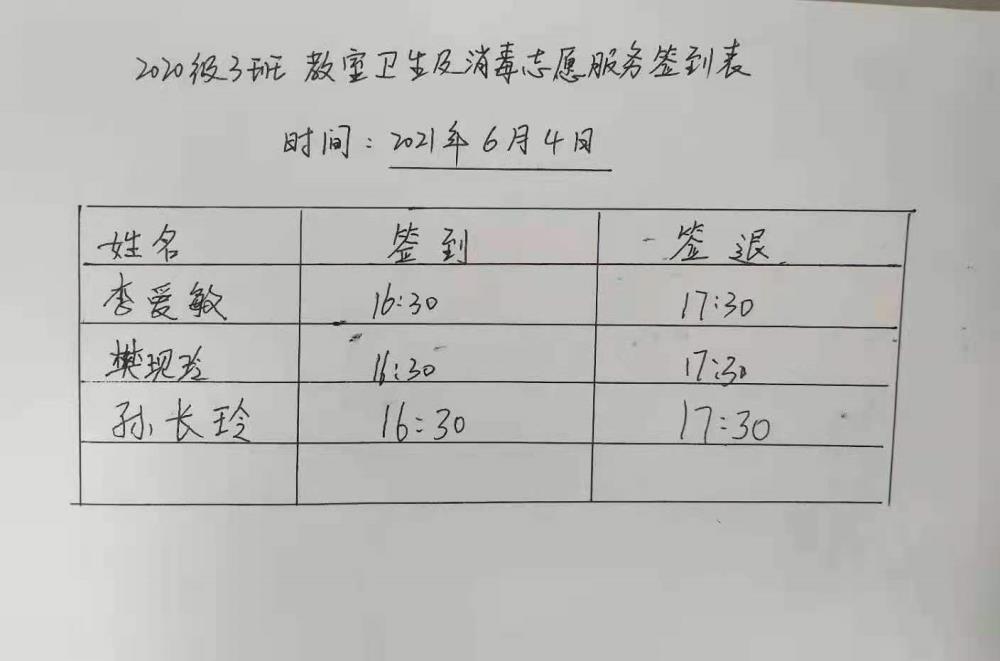 2020级3班 教室卫生及消毒志愿服务签到表
时间：2021年6月4日
姓名 签到 签退
李爱敏 16:30 17:30
樊现玲 16:30 17:30
孙长玲 16:30 17:30